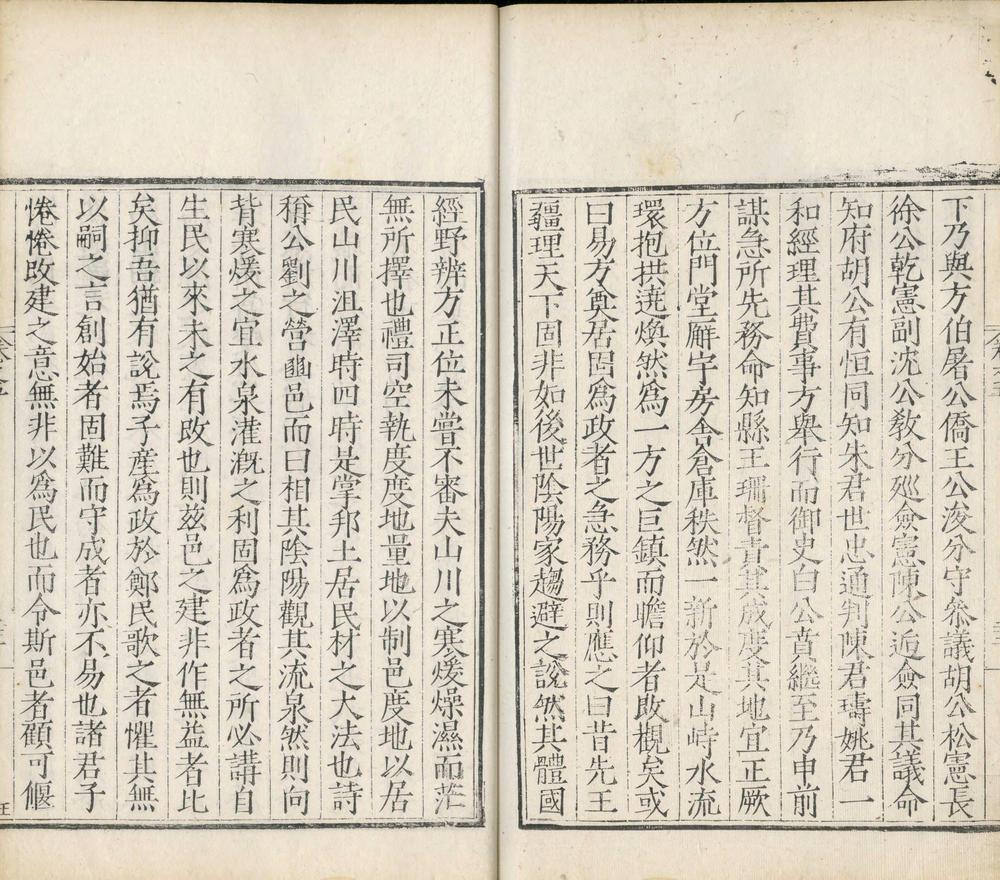 下乃與方伯屠公僑王公浚分守叅議胡公松憲長
徐公乾憲副沈公敎分廵僉憲陳公逅僉同其議命
知府胡公有恒同知朱君世忠通判陳君璹姚君一
和經理其費事方舉行而御史白公賁繼至乃申前
謀急所先務命知縣王珊督責其成度其地宜正厥
方位門堂廨宇房舎倉庫秩然一新於是山峙水流
環抱拱遶煥然爲一方之巨鎮而瞻仰者改觀矣或
曰易方奠居固爲政者之急務乎則應之曰昔先王
疆理天下固非如後世陰陽家趨避之說然其體國
經野辨方正位未嘗不審夫山川之寒煖燥濕而茫
無所擇也禮司空執度度地量地以制邑度地以居
民山川沮澤時四時是掌邦土居民材之大法也詩
稱公劉之營豳邑而曰相其陰陽觀其流泉然則向
背寒煖之宜水泉灌漑之利固爲政者之所必講自
生民以來未之有改也則兹邑之建非作無益者比
矣抑吾猶有說焉子產爲政於鄭民歌之者懼其無
以嗣之言創始者固難而守成者亦不易也諸君子
惓惓改建之意無非以爲民也而令斯邑者顧可偃